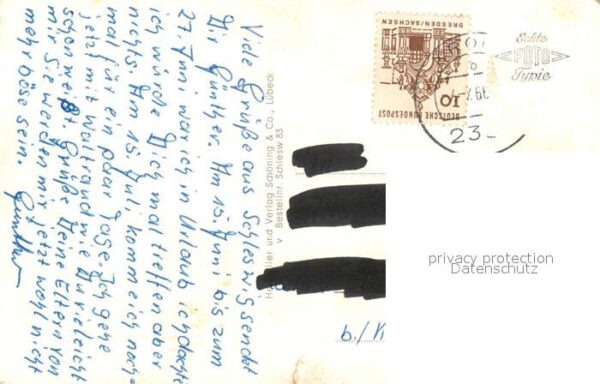 Viele Grüße aus Schleswig sendet
Dir Günther. Am 15 Juni bis zum
27. Juni war ich in Urlaub ich dachte
ich würde Dich mal treffen aber
nichts. Am 15 Juli komme ich noch-
mal für ein paar Tage. Ich gehe
jetzt mit Waltraud wie Du vieleicht
schon weist. Grüße Deine Eltern von
mir Sie werden mir jetzt wohl nicht
mehr böse sein. Günther
Hersteller und Verlag Schöning & Co., Lübeck
v Bestellnr. Schlesw 83
DRESDEN/SACHSEN
10
DEUTSCHE BUNDESPOST
23
Echte
FOTO
Typie
b./K
privacy protection
Datenschutz